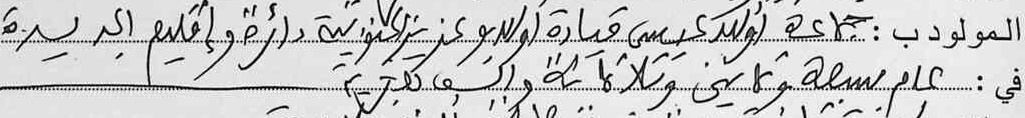 المولود ب: جماعة أولاد عيسى قيادة أولاد بوعزيز الجنوبية دائرة وإقليم الجديدة
في: عام سبعة وثلاثين وثلاثمائة وألف هجرية